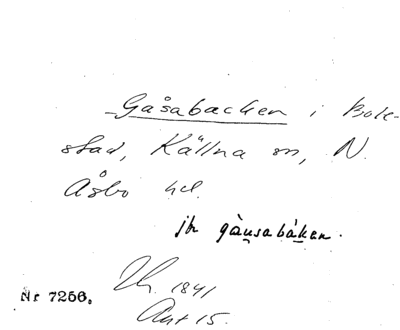 Gåsabacken i Bole-
stad, Källna sn, N.
Åsbo hd.
jh gàusabàkan.
Nr 7256. Th. 1841
Ant 15.